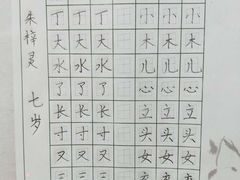 朱梓灵 七岁
丁 丁 丁 小 小
大 大 大 木 木
水 水 水 儿 儿
了 了 了 心 心
长 长 长 立 立
寸 寸 寸 头 头
又 又 又 女 女
三 三 三